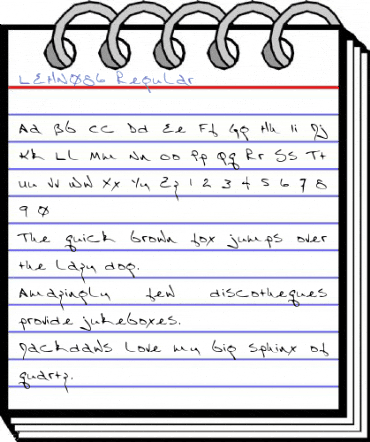 LEHN086 Regular
Aa Bb Cc Dd Ee Ff Gg Hh Ii Jj
Kk Ll Mm Nn Oo Pp Qq Rr Ss Tt
Uu Vv Ww Xx Yy Zz 1 2 3 4 5 6 7 8
9 0
The quick brown fox jumps over
the lazy dog.
Amazingly few discotheques
provide jukeboxes.
Jackdaws love my big sphinx of
quartz.